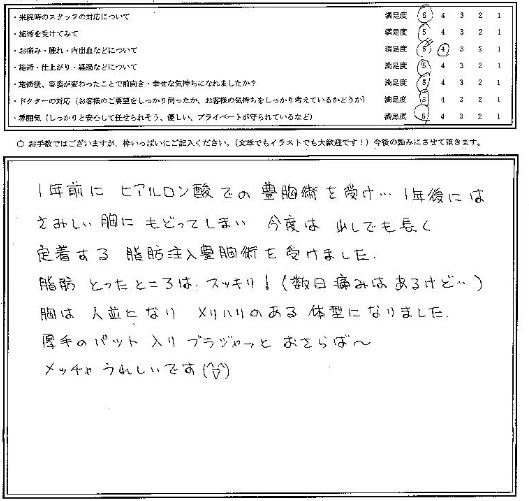 ・来院時のスタッフの対応について 満足度 5 4 3 2 1
・施術を受けてみて 満足度 5 4 3 2 1
・お痛み・腫れ・内出血などについて 満足度 5 4 3 2 1
・施術・仕上がり・経過などについて 満足度 5 4 3 2 1
・施術後、容姿が変わったことで前向き・幸せな気持ちになれましたか？ 満足度 5 4 3 2 1
・ドクターの対応（お客様のご要望をしっかり伺ったか、お客様の気持ちをしっかり考えているかどうか） 満足度 5 4 3 2 1
・雰囲気（しっかりと安心して任せられそう、優しい、プライベートが守られているなど） 満足度 5 4 3 2 1
○ お手数ではございますが、枠いっぱいにご記入ください。（文章でもイラストでも大歓迎です！）今後の励みにさせて頂きます。
1年前に ヒアルロン酸での豊胸術を受け… 1年後には
さみしい胸にもどってしまい 今度は 少しでも長く
定着する 脂肪注入豊胸術を受けました.
脂肪 とったところは、スッキリ！（数日痛みはあるけど…）
胸は 人並になり メリハリのある 体型になりました.
厚手のパット 入り ブラジャーっと おさらば〜
メッチャ うれしいです(^▽^)